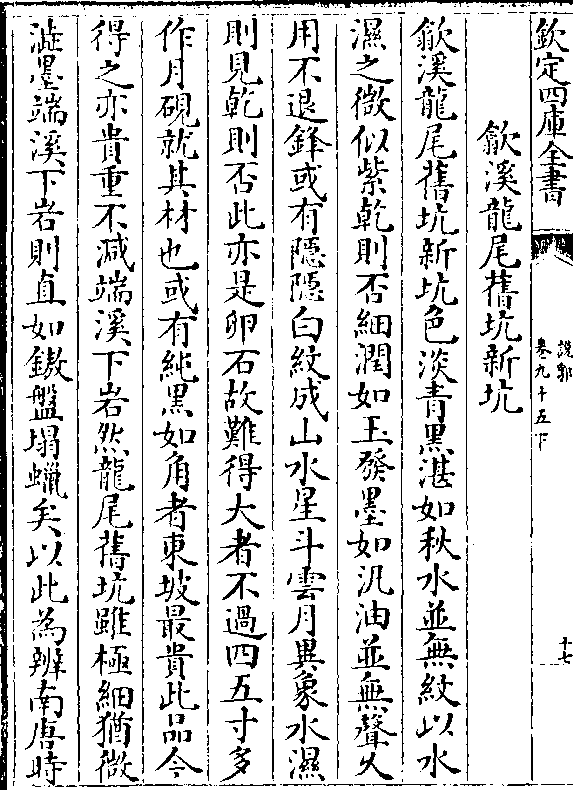 欽定四庫全書
說郛
卷九十五下
十七
歙溪龍尾舊坑新坑
歙溪龍尾舊坑新坑色淡青黑湛如秋水並無紋以水
濕之微似紫乾則否細潤如玉發墨如汎油並無聲久
用不退鋒或有隱隱白紋成山水星斗雲月異象水濕
則見乾則否此亦是卵石故難得大者不過四五寸多
作月硯就其材也或有純黑如角者東坡最貴此品今
得之亦貴重不減端溪下岩然龍尾舊坑雖極細猶微
澁墨端溪下岩則直如鏾盤塌蠟矣以此為辨南唐時